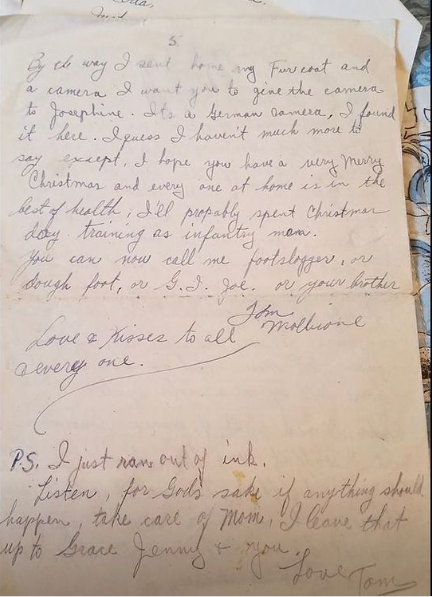 5
By the way I send home my Fur coat and
a camera I want you to give the camera
to Josephine. Its a German camera, I found
it here. I guess I haven't much more to
say except, I hope you have a very Merry
Christmas and every one at home is in the
best of health, I'll propably spent Christmas
day training as infantry man.
You can now call me footslogger, or
dough foot, or G.I. Joe. or your brother
Tom
Love & Kisses to all
& every one.
P.S. I just ran out of ink.
Listen, for Gods sake if anything should
happen, take care of Mom, I leave that
up to Grace Jenny & you.
Love Tom